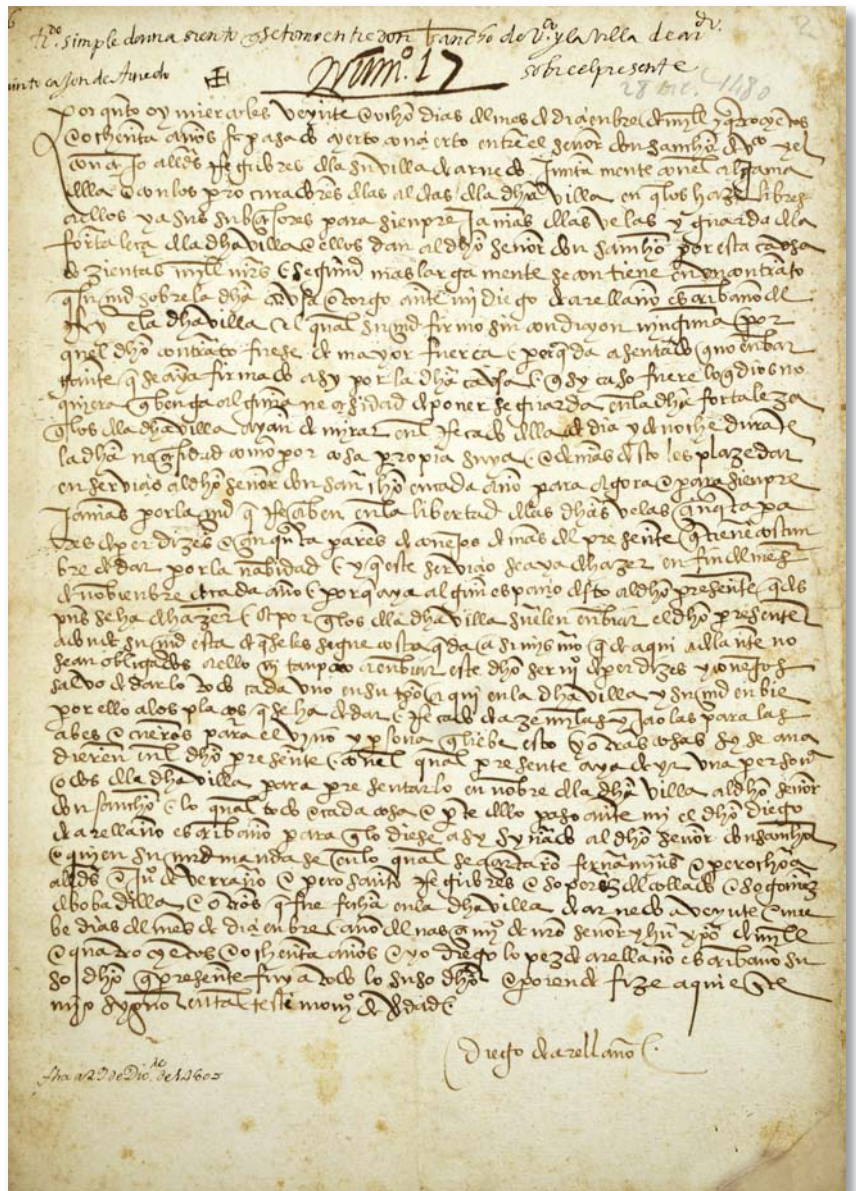 tr.º simple de un asiento q se tomo entre don Sancho de V.co y la Villa de ar.do
Num.º 17 sobre el presente
28 Dic. 1480
por qnto oy miercoles veynte e ocho dias del mes de diziembre de mill y quatroçientos
e ochenta años se pasa do çierto conçierto entre el señor don sancho de v.co y el
conçejo alldes Regidores dla su villa de arnedo Junta mente con el aljama
della e con los procuradores dlas aldeas dla dha villa en q los haze libres
a ellos y a sus subçesores para sienpre Jamas dlas velas y guarda dla
fortaleza dla dha villa e ellos dan al dho señor don sancho por esta cavsa
dozientas mill mrs e segund mas larga mente se contiene en un contrato
q su md sobre la dha cavsa otorgo ante mi diego de arellano escribano del
Rey e la dha villa el qual su md firmo sin condiçion ninguna por
quel dho contrato fuese de mayor fuerça e por q da asentado q no enbar
gante q se aya firmado asy por la dha cavsa q sy caso fuere lo q dios no
quiera q benga alguna neçesidad de poner se guarda en la dha fortaleza
q los dla dha villa ayan de mirar en el Recado della de dia y de noche durante
la dha neçesidad como por cosa propia suya e demas desto les plaze dar
en serviçio al dho señor don sancho en cada año para agora e para sienpre
Jamas por la md q Resçiben en la libertad dlas dhas velas çinquenta pa
res de perdizes e çinqta pares de conejos demas del presente q tiene costun
bre de dar por la nabidad y q este serviçio se aya de hazer en fin del mes
de nobienbre de cada año e por q aya algun espaçio desto al dho presente q des
pues se ha de hazer por q los dla dha villa suelen enbiar el dho presente
adonde su md esta de q se les sigue costa queda asi mismo q de aqui adelante no
sean obligados a ello ni tanpoco a enbiar este dho serviº de perdizes y conejos
salvo de darlo todo cada uno en su tpo aqui en la dha villa y su md enbie
por ello a los plazos q se ha de dar e Recado de azemilas y Jaolas para las
abes e cueros para el vino y persona q liebe esto y otras cosas sy se aña
dieren en el dho presente con el qual presente aya de yr una persona
o dos dla dha villa para presentarlo en nobre dla dha villa al dho señor
don sancho lo qual todo e cada cosa e pte dello paso ante mi el dho diego
de arellano escribano para q lo diese asy synado al dho señor don sancho
e quien su md mandase en lo qual se açertaro
alldes e Juº de e pero Regidores e
de bobadilla e otros q fue fecha en la dha villa de arnedo a veynte e nue
be dias del mes de diziembre año del nasçimº de nro señor yhu xpo de mill
e quatroçientos e ochenta años e yo diego lopez de arellano escribano su
so dho q presente fuy a todo lo suso dho e por ende fize aqui este
mjo sygno en tal testimonº de verdad
Diego de arellano
fha a 29 de Dic.re de 1480